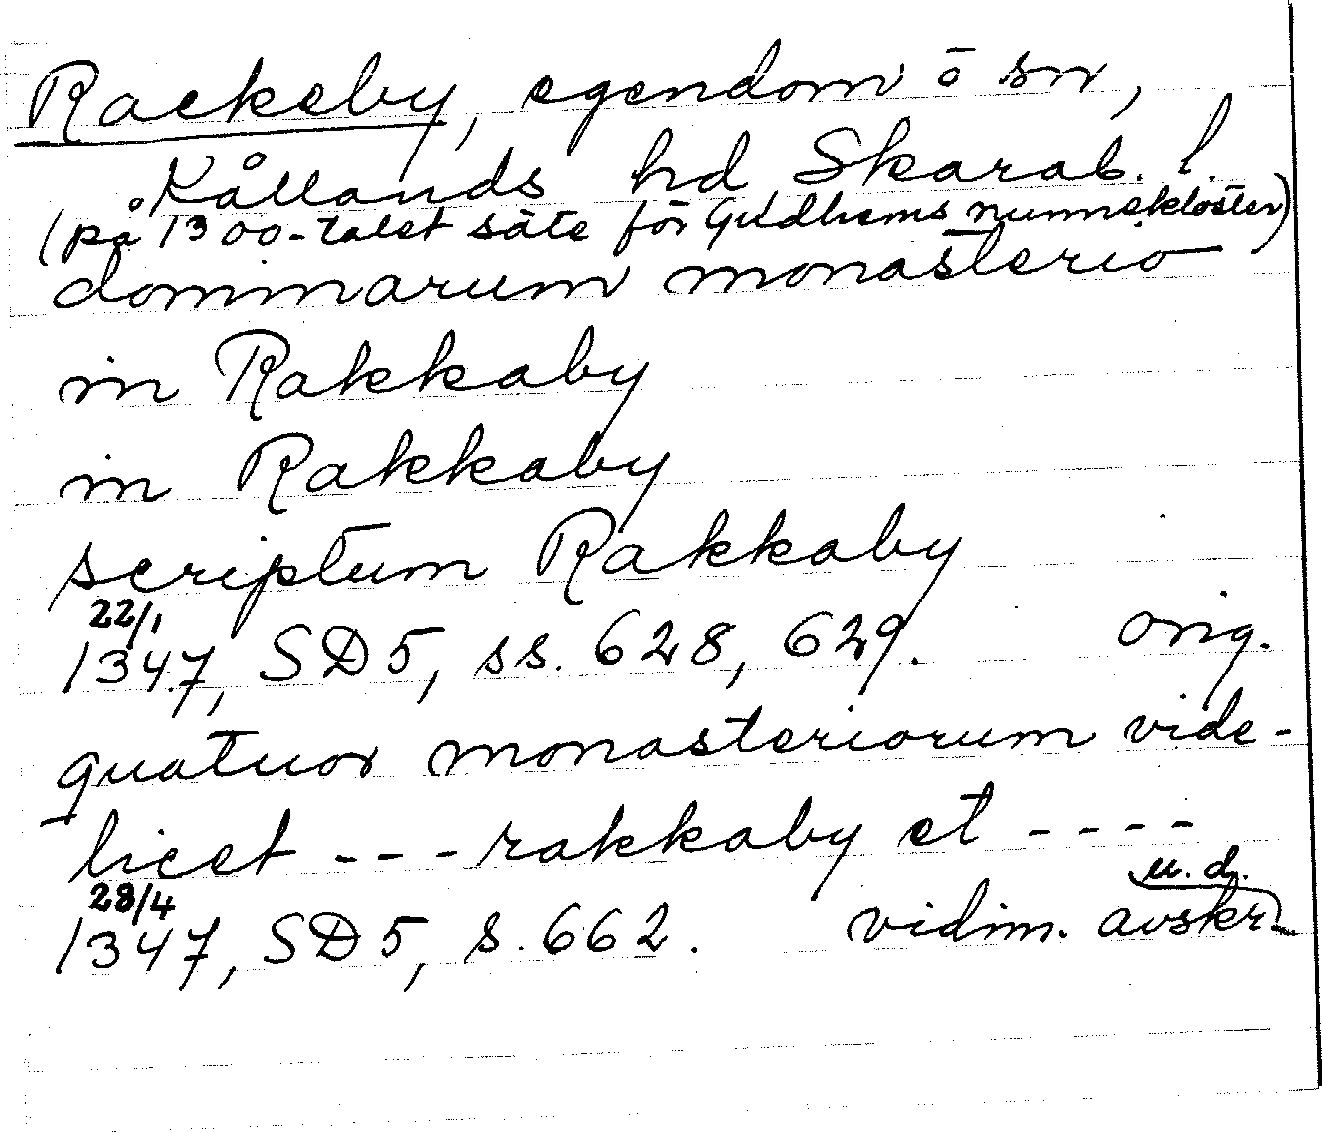 Rackeby, egendom ō sn,
Kållands hd Skarab. l.
(på 1300-talet säte för Gudhems nunnekloster)
dominarum monasterio
in Rakkaby
in Rakkaby
scriptum Rakkaby
22/1
1347, SD5, ss. 628, 629. orig.
quatuor monasteriorum vide-
licet --- rakkaby et ----
28/4 u. d.
1347, SD5, s. 662. vidim. avskr.